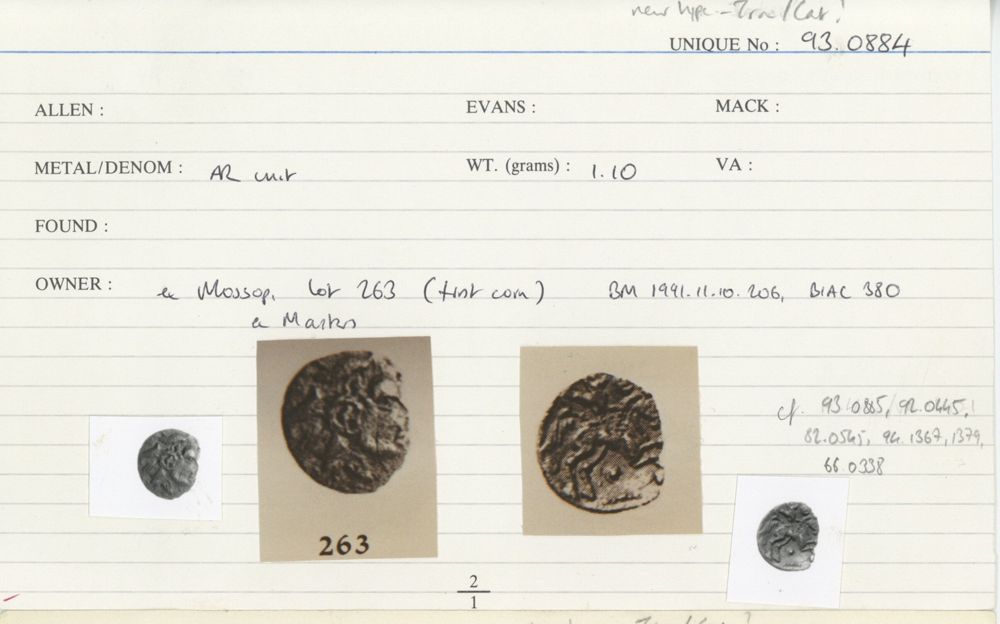 new type - Trin/Cat?
UNIQUE No : 93.0884
ALLEN : EVANS : MACK :
METAL/DENOM : AR unit WT. (grams) : 1.10 VA :
FOUND :
OWNER : ex Mossop, lot 263 (first coin) BM 1991.11.10.206, BIAC 380
ex
cf. 93.0885, 92.0445,
82.0545, 94.1367, 1379,
66.0338
263
2
1